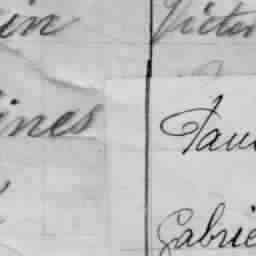 in Victor
ines Pau
Gabrie